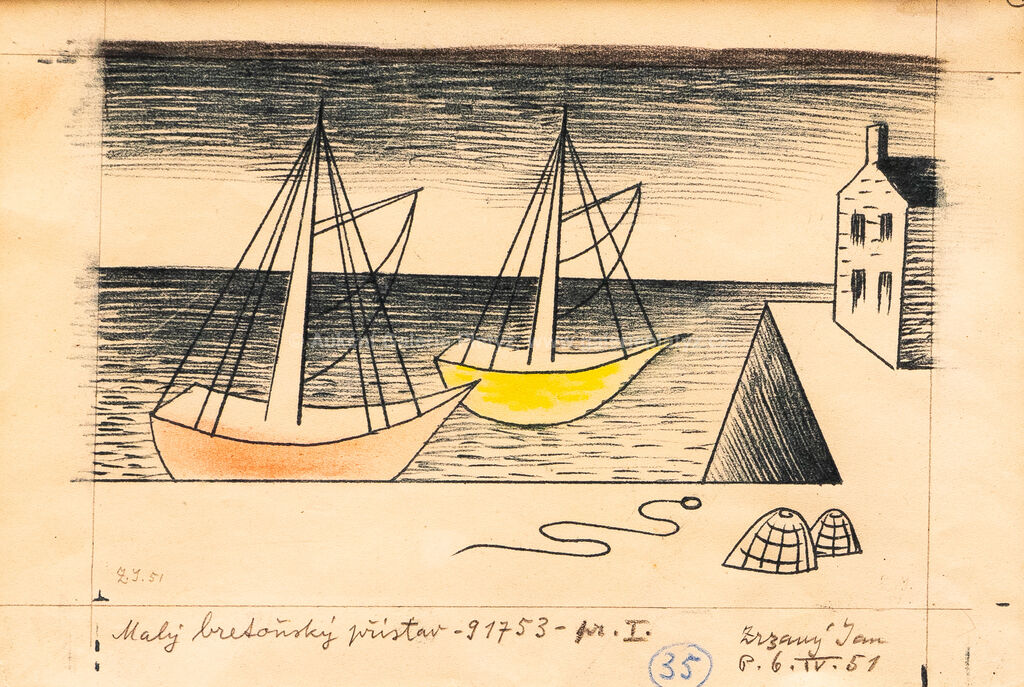 Z.J.51
Malý bretoňský přístav - 91753 - pr. I.
35
Zrzavý Jan
P. 6. IV. 51